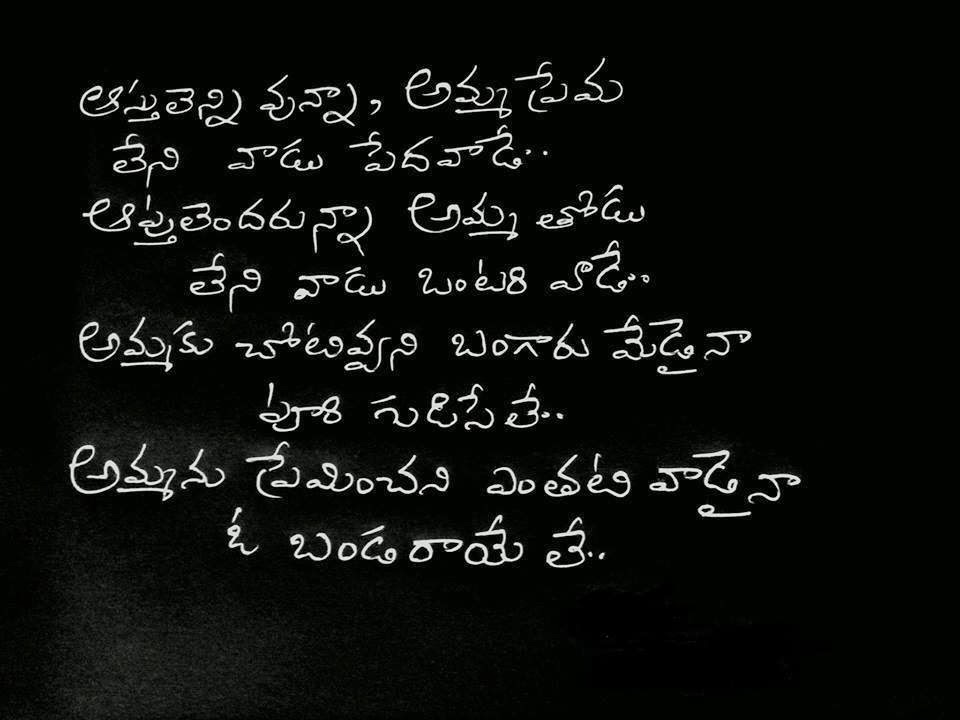 ఆస్తులెన్ని వున్నా, అమ్మ ప్రేమ
లేని వాడు పేదవాడే..
ఆప్తులెందరున్నా అమ్మ తోడు
లేని వాడు ఒంటరి వాడే..
అమ్మకు చోటివ్వని బంగారు మేడైనా
పూరి గుడిసే లే..
అమ్మను ప్రేమించని ఎంతటి వాడైనా
ఓ బండ రాయే లే..